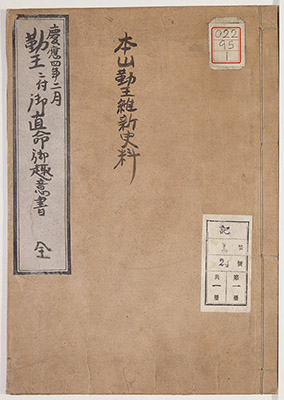 慶應四年二月
勤王ニ付御直命御趣意書
全
本山勤王維新史料
022
95
1
記
號
2
號
第一冊
共一冊